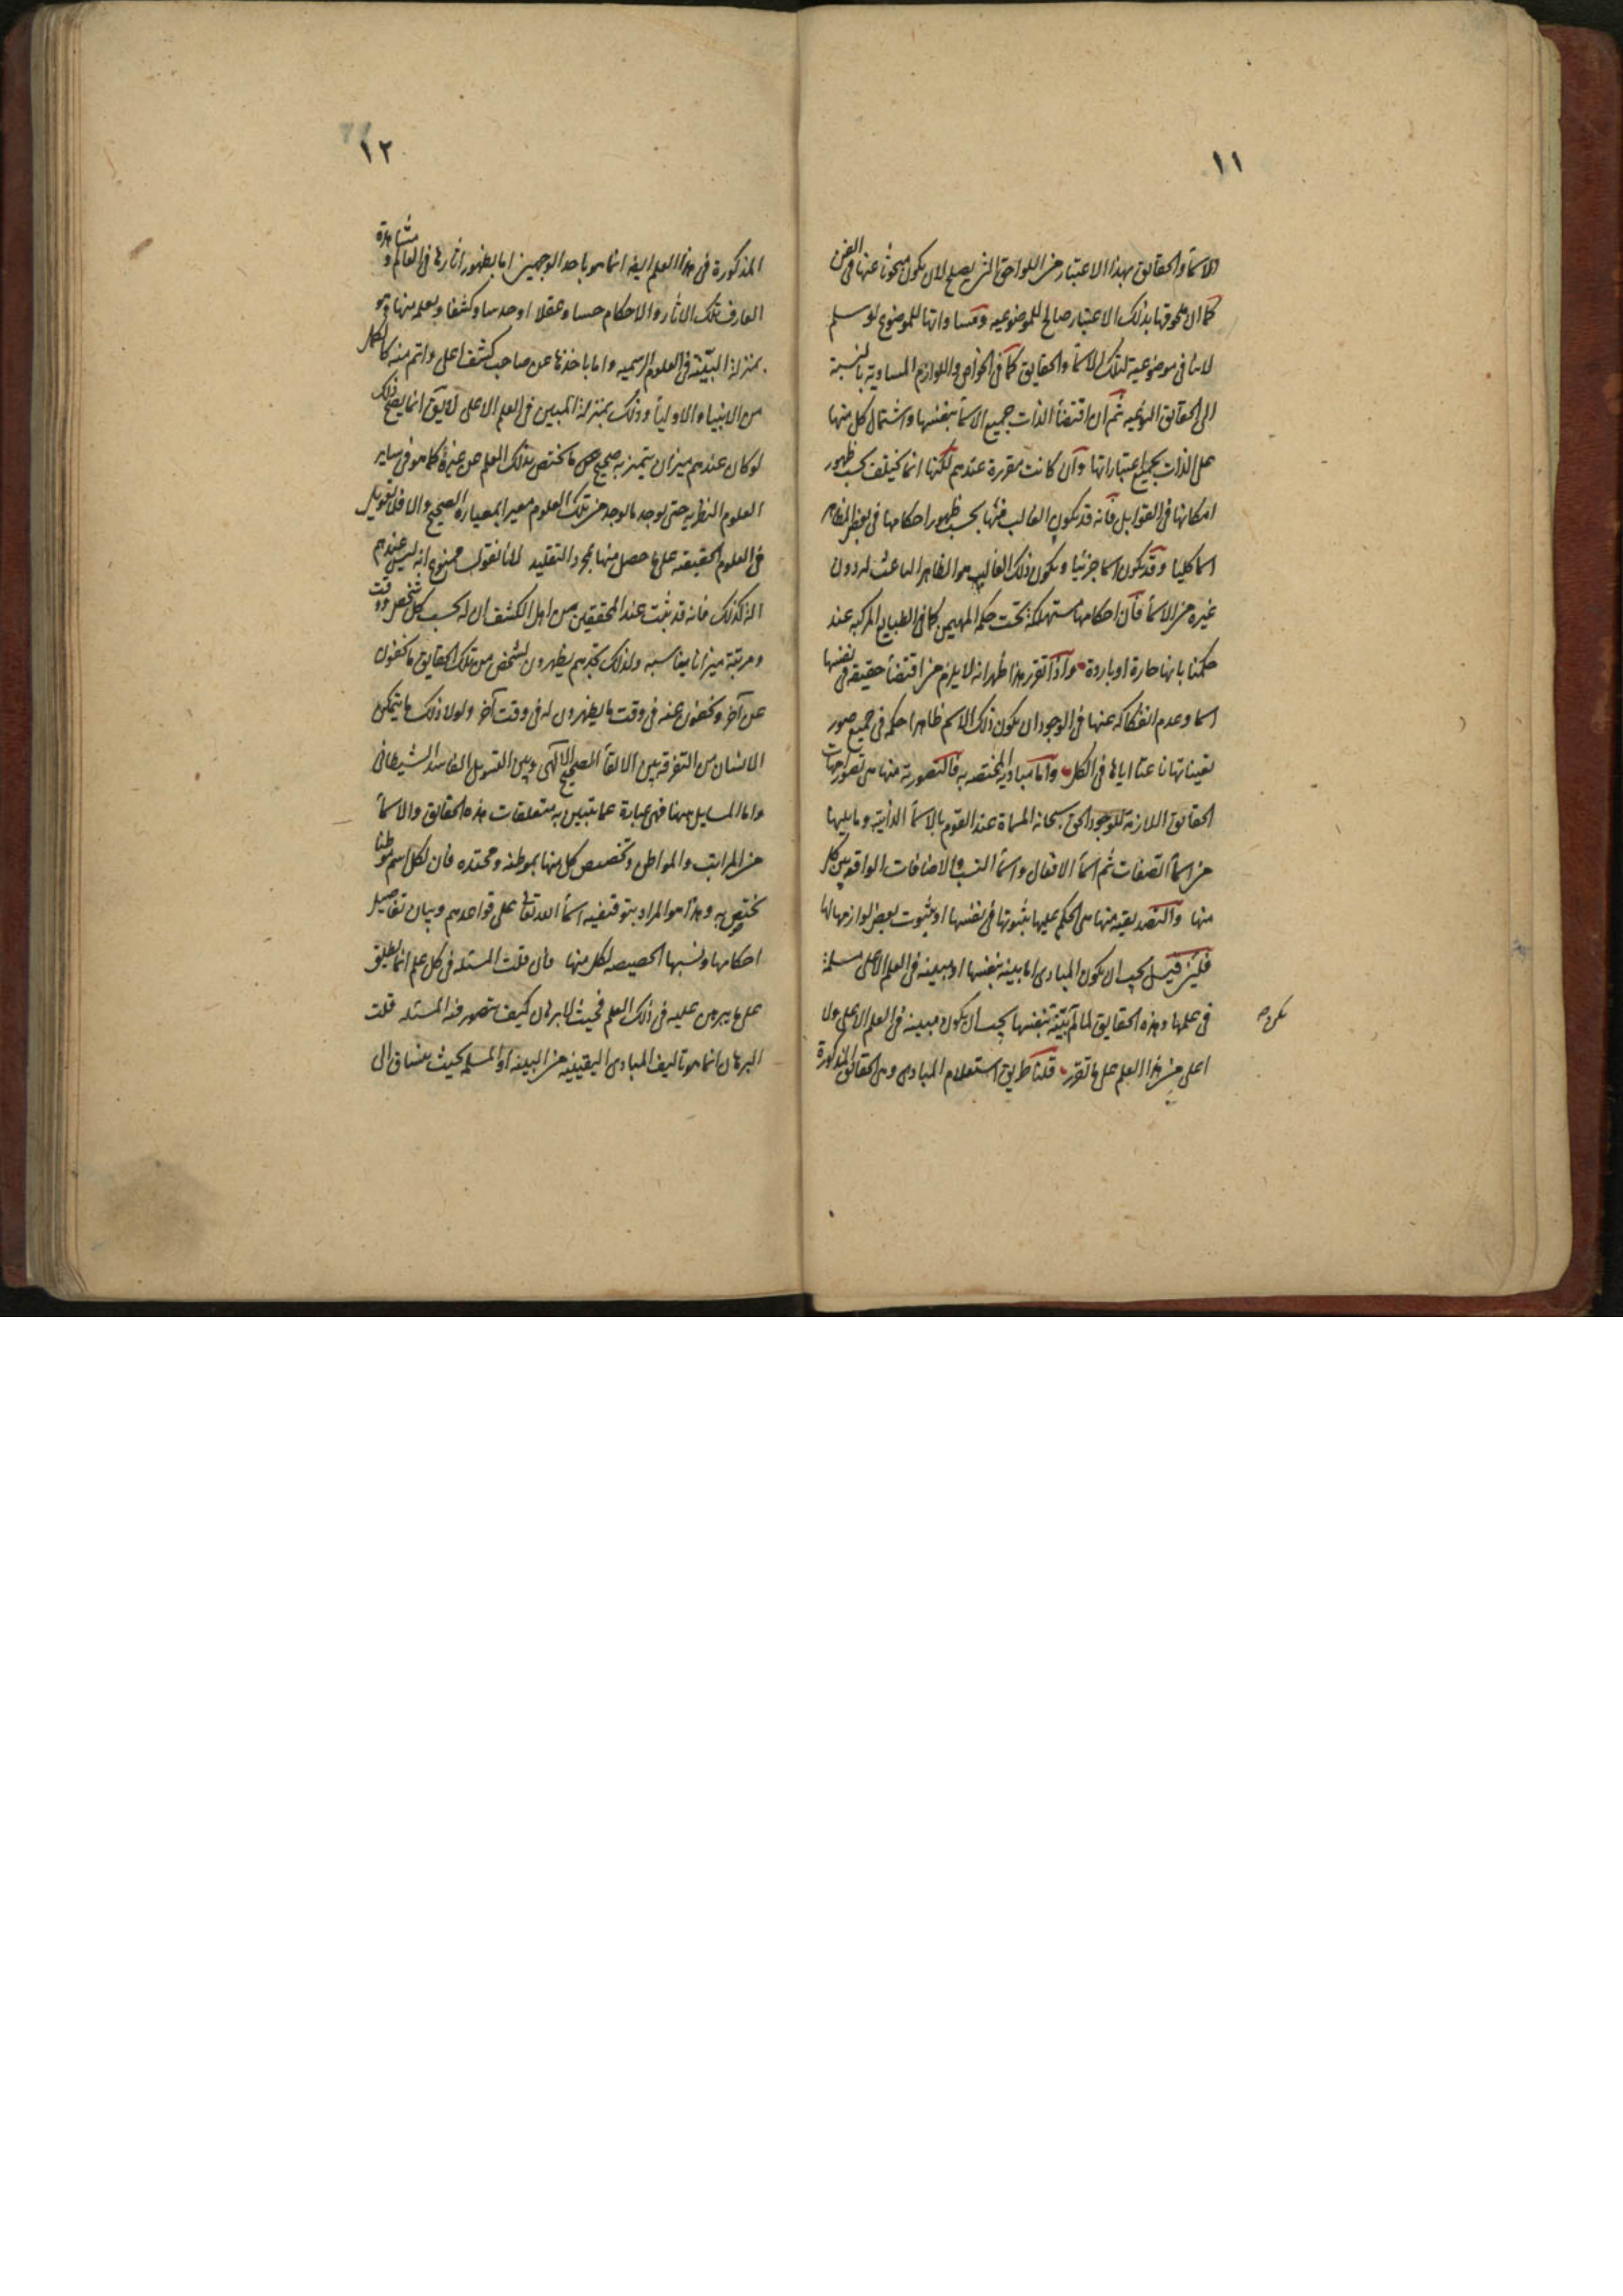 ١١
الاسما والحقايق بهذا الاعتبار من اللواحق التى يصلح لان يكون مبحوثا عنها فى الفن
كما ان لحوقها بذلك الاعتبار صالح للموضوعيه ومساواتها للموضوع لو سلم
لا ينافى موضوعية لتلك الاسما والحقايق كما فى الخواص واللوازم المساوية بالنسبة
الى الحقايق النوعيه ثم ان اقتضأ الذات جميع الاسمأ بنفسها واشتمال كل منها
على الذات بجميع اعتباراتها وان كانت مقررة عندهم لكنها انما يختلف بحسب ظهور
احكامها فى القوابل فانه قد يكون الغالب منها بحسب ظهور احكامها فى بعض المظاهر
اسما كليا وقد يكون اسما جزئيا ويكون ذلك الغالب هو الظاهر الباعث له دون
غيره من الاسمأ فان احكامها مستهلكة تحت حكم المهيمن كما فى الطبايع المركبه عند
حكمنا بانها حارة او باردة واذا تقرر هذا ظهر انه لا يلزم من اقتضأ حقيقه فى نفسها
اسما وعدم انفكاكه عنها فى الوجود ان يكون ذلك الاسم ظاهرا حكمه فى جميع صور
تعيناتها باعتنا اياها فى الكل واما مباديه المختصه به فالتصورية منها هى تصورات امهات
الحقايق اللازمة للوجود الحق سبحانه المسماة عند القوم بالاسمأ الذاتية وما يليها
من اسمأ الصفات ثم اسمأ الافعال واسمأ النسب والاضافات الواقعة بين كل
منها والتصديقيه منها هى الحكم عليها بثبوتها فى نفسها او بثبوت بعض لوازمها لها
فلئن قيل يجب ان يكون المبادى اما بينة بنفسها او مبينة فى العلم الاعلى مسلمة
فى علمها وهذه الحقايق لما لم بيّنة بنفسها يجب ان يكون مبينه فى العلم الاعلى ولا
اعلى من هذا العلم على ما تقرر قلنا طريق استعلام المبادى وهى الحقائق المذكورة
يكن صح
١٢
المذكورة فى هذا العلم ايضا انما هو باحد الوجهين اما بظهور اثارها فى العالم ومشاهدة
العارف تلك الاثار والاحكام حسا وعقلا او حدسا وكشفا ويعلم منها وهو
بمنزلة البيّنة فى العلوم الرسميه واما باخذها عن صاحب كشف اعلى واتم منه كالكمل
من الانبياء والاوليأ وذلك بمنزلة المبين فى العلم الاعلى لا يق انما يصح ذلك
لو كان عندهم ميزان يتميز به صحيح ما يختص بذلك العلم عن غيره كما هو فى ساير
العلوم النظريه حتى يوجد ما يوجد من تلك العلوم معيرا بمعياره الصحيح والا فلا تعويل
فى العلوم الحقيقه على ما حصل منها بمجرد التقليد لانا نقول ممنوع انه ليس عندهم
الة كذلك فانه قد ثبت عند المحققين من اهل الكشف ان له بحسب كل شخص ووقت
ومرتبة ميزانا يناسبه ولذلك تجدهم يظهرون لشخص من تلك الحقايق ما يخفون
عن آخر ويخفون عنه فى وقت ما يظهرون له فى وقت آخر ولولا ذلك ما يتمكن
الانسان من التفرقه بين الالقأ الصحيح الالهى وبين التسويل الفاسد الشيطانى
واما المسايل ههنا فهى عبارة عما يتبين به متعلقات هذه الحقائق والاسمأ
من المراتب والمواطن وتخصيص كل منها بموطنه ومحتده فان لكل اسم موطنا
يختص به وهذا هو المراد بتوقيفيه اسمأ الله تعالى على قواعدهم وبيان تفاصيل
احكامها ونسبها الخصيصه لكل منها فان قلت المسئله فى كل علم انما يطلق
على ما يبرهن عليه فى ذلك العلم فحيث لا برهان كيف يتصور فيه المسئله قلت
البرهان انما هو تاليف المبادى اليقينيه من البينه او المسلمه بحيث ينساق الى